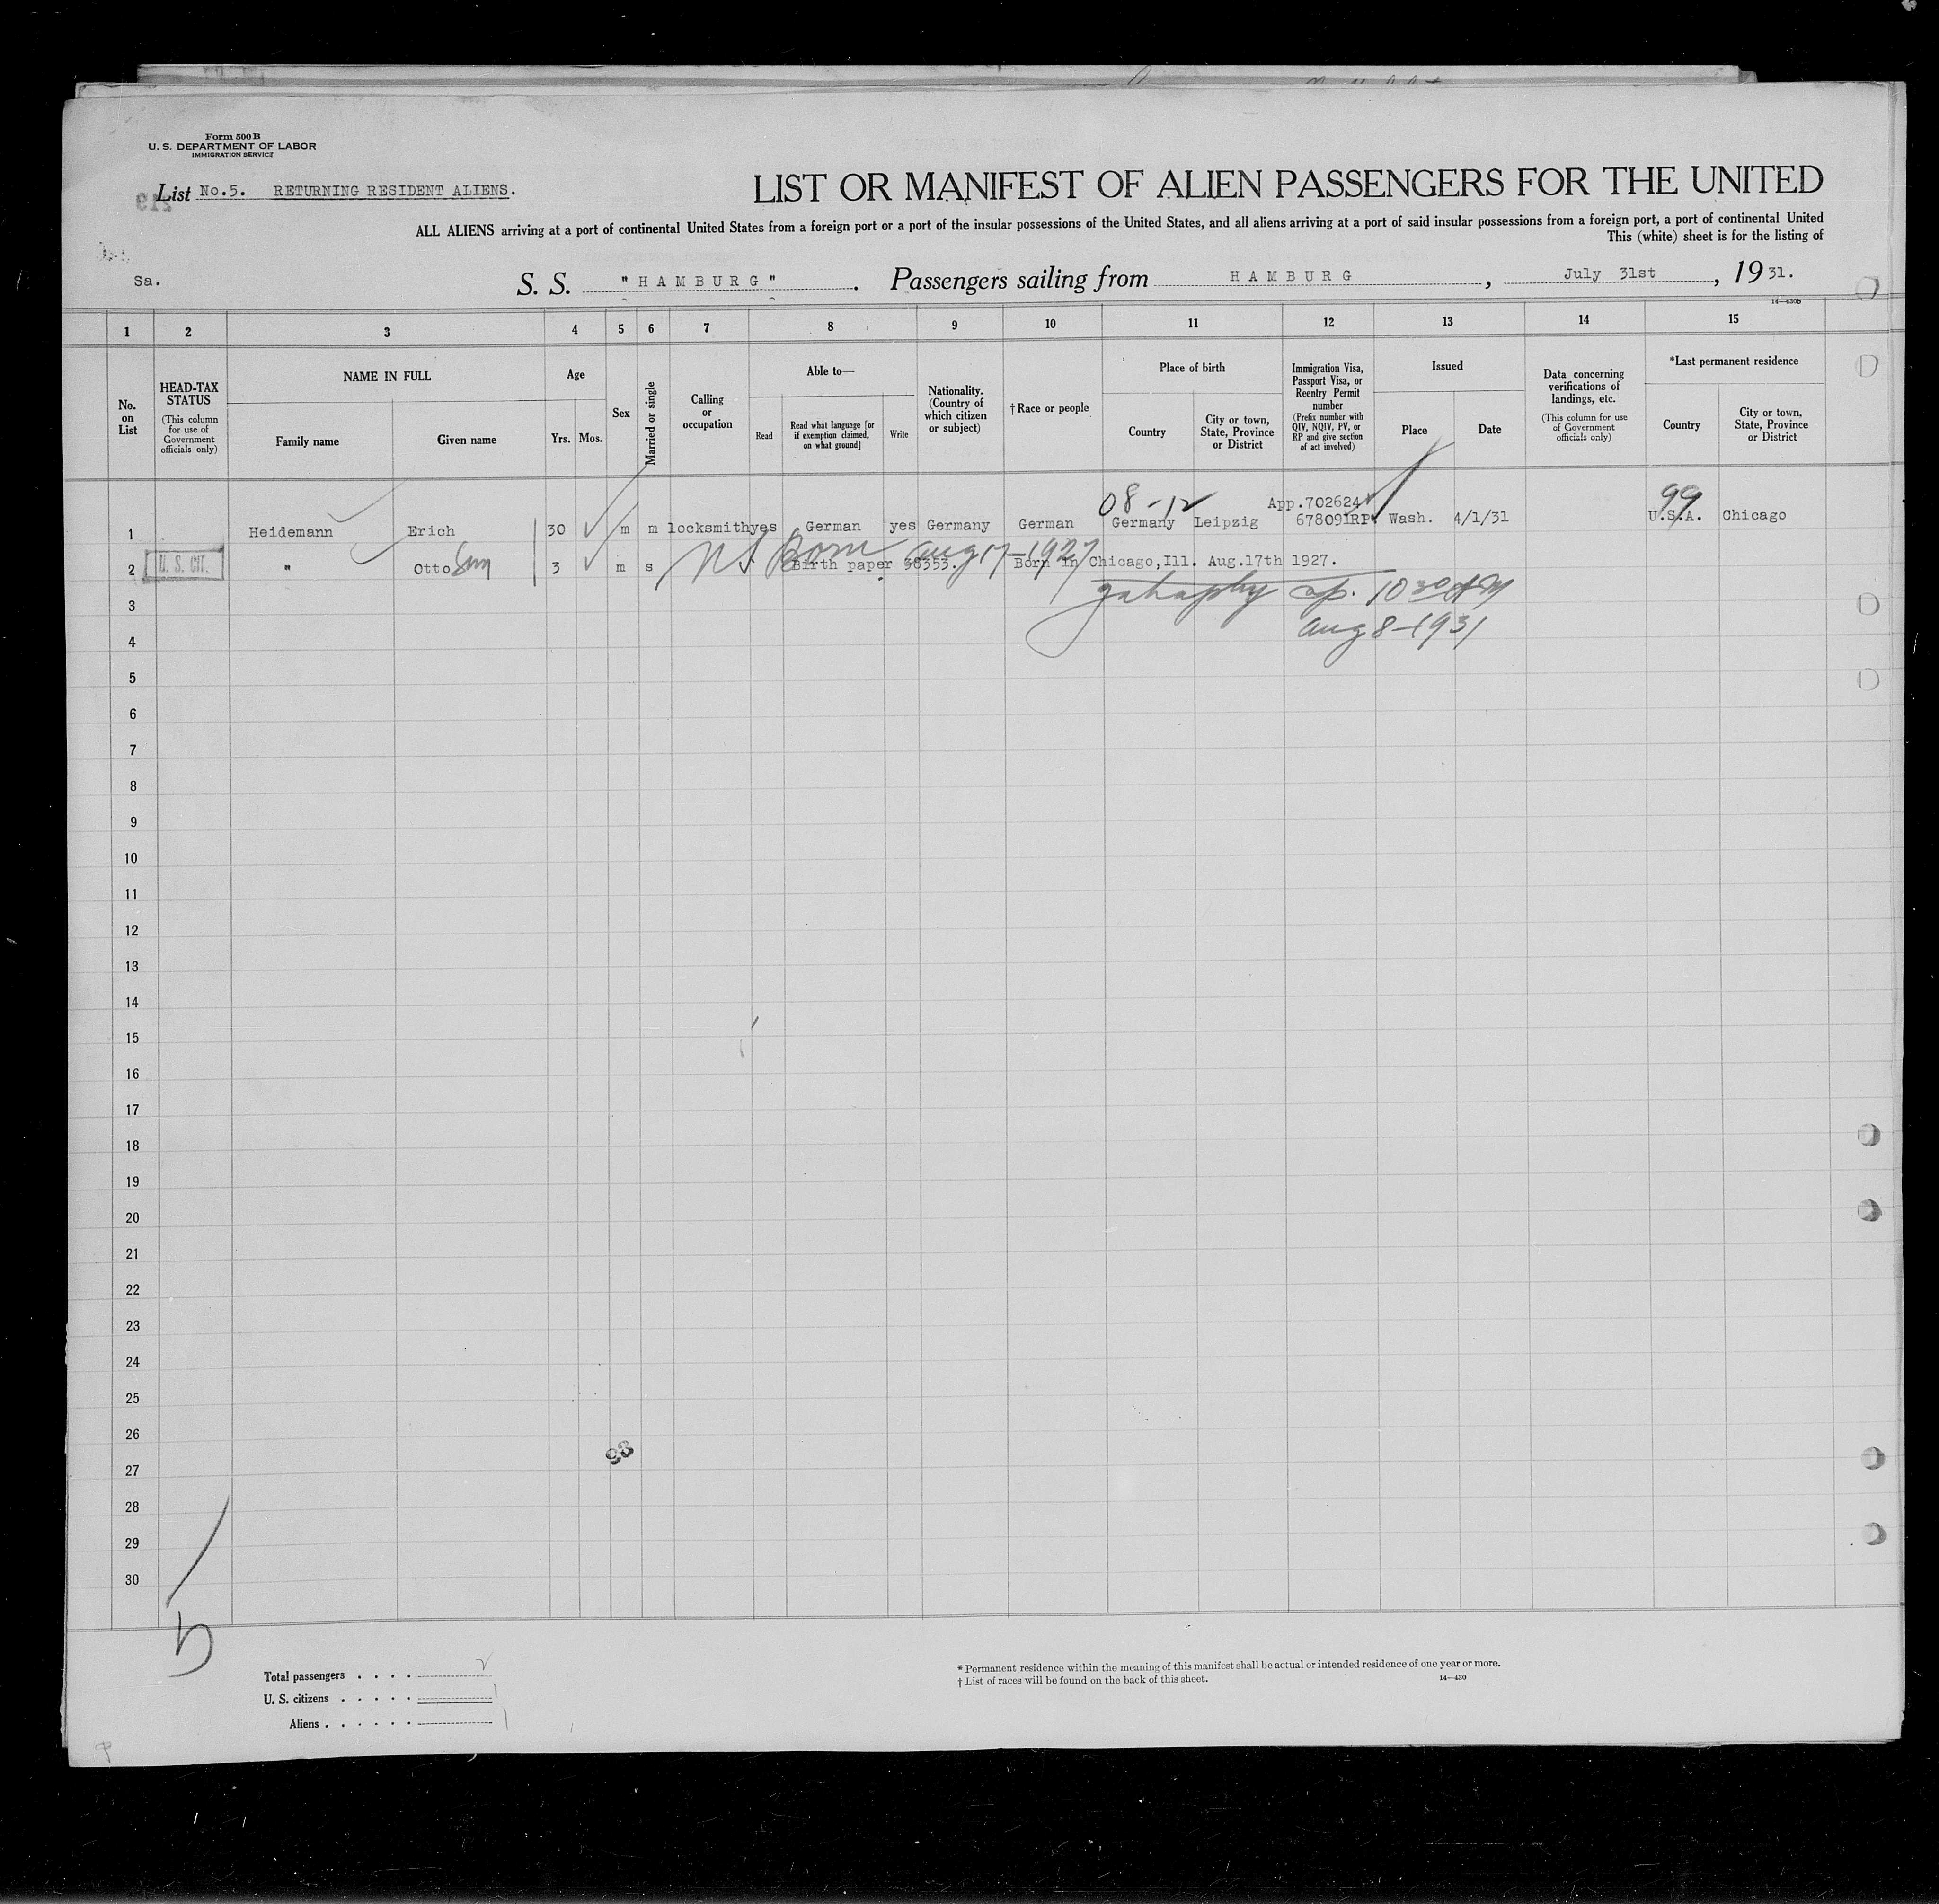 Form 500 B
U. S. DEPARTMENT OF LABOR
IMMIGRATION SERVICE
List No.5. RETURNING RESIDENT ALIENS.
213
LIST OR MANIFEST OF ALIEN PASSENGERS FOR THE UNITED
ALL ALIENS arriving at a port of continental United States from a foreign port or a port of the insular possessions of the United States, and all aliens arriving at a port of said insular possessions from a foreign port, a port of continental United
This (white) sheet is for the listing of
Sa.
S. S. "HAMBURG". Passengers sailing from HAMBURG, July 31st, 1931.
14—430b
1 2 3 4 5 6 7 8 9 10 11 12 13 14 15
No. on List
HEAD-TAX STATUS (This column for use of Government officials only)
NAME IN FULL
Family name
Given name
Age
Yrs.
Mos.
Sex
Married or single
Calling or occupation
Able to—
Read
Read what language [or if exemption claimed, on what ground]
Write
Nationality. (Country of which citizen or subject)
† Race or people
Place of birth
Country
City or town, State, Province or District
Immigration Visa, Passport Visa, or Reentry Permit number (Prefix number with QIV, NQIV, PV, or RP and give section of act involved)
Issued
Place
Date
Data concerning verifications of landings, etc. (This column for use of Government officials only)
*Last permanent residence
Country
City or town, State, Province or District
08-12 App.702624 99
1 Heidemann Erich 30 m m locksmith yes German yes Germany German Germany Leipzig 678091RP Wash. 4/1/31 U.S.A. Chicago
Born Aug 17-1927
2 U. S. CIT. " Otto 3 m s Birth paper 38353. Born in Chicago, Ill. Aug.17th 1927.
3
10 30 AM
4
Aug 8-1931
5
6
7
8
9
10
11
12
13
14
15
16
17
18
19
20
21
22
23
24
25
26
98
27
28
29
30
5
Total passengers . . . .
U. S. citizens . . . . . 1
Aliens . . . . . . 1
* Permanent residence within the meaning of this manifest shall be actual or intended residence of one year or more.
† List of races will be found on the back of this sheet.
14—430